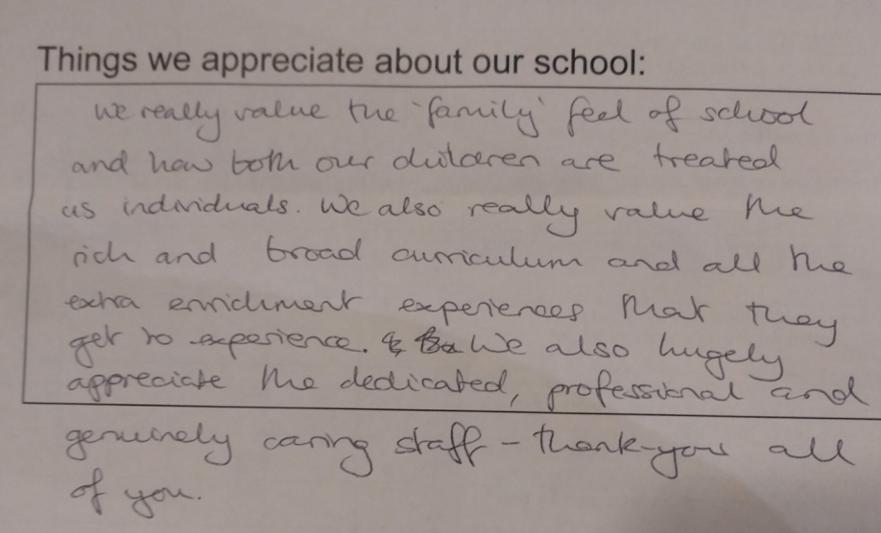 Things we appreciate about our school:
We really value the 'family' feel of school
and how both our children are treated
as individuals. We also really value the
rich and broad curriculum and all the
extra enrichment experiences that they
get to experience. We also hugely
appreciate the dedicated, professional and
genuinely caring staff - thank-you all
of you.